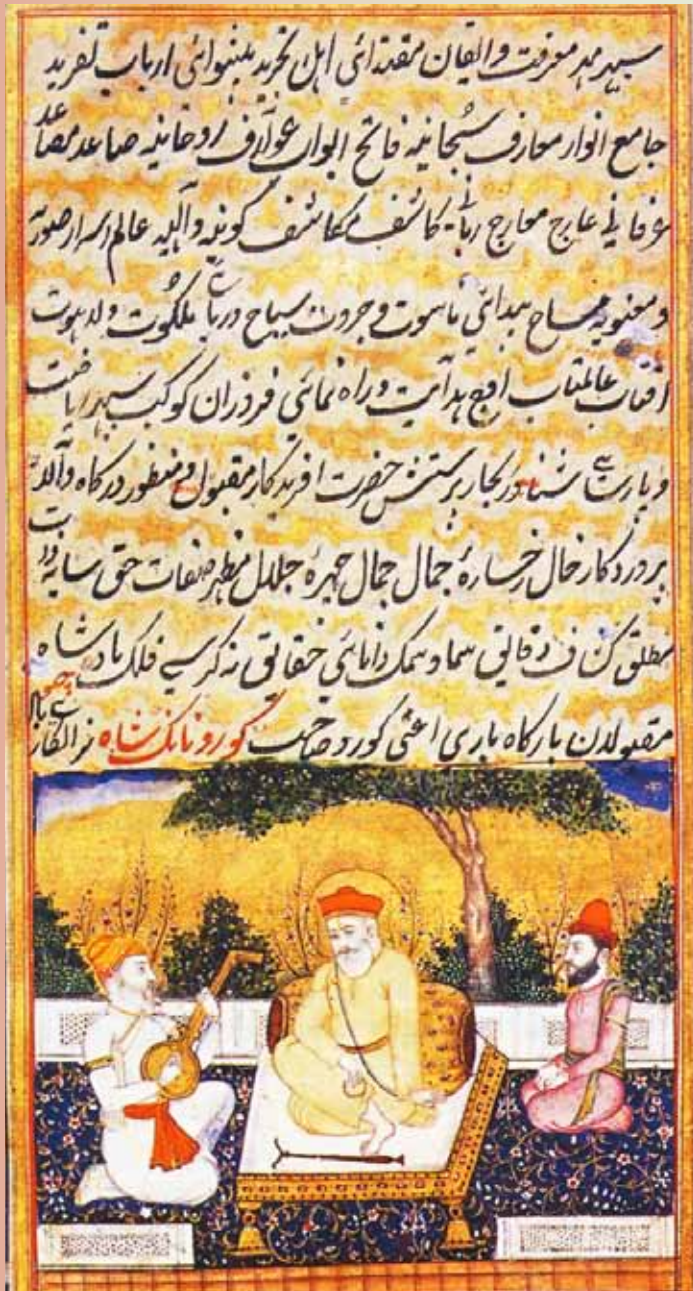 سپهر مهر معرفت و ایقان مقتدائی اهل تجرید پیشوائی ارباب تفرید
جامع انوار معارف سبحانیه فاتح ابواب عوارف روحانیه صاعد مصاعد
عرفانی عارج معارج ربانی کاشف مکاشف کونیه و آلهیه عالم اسرار صوریه
و معنویه مساح بیدائی ناسوت و جبروت سیاح دریائی ملکوت و لاهوت
افتاب عالمتاب اوج هدایت و راه نمائی فروزان کوکب سپهر ریاضت
و پارسائی شناور بحار پرستش حضرت افریدکار مقبول و منظور درکاه
پروردکار خال رخسارهٔ جمال جمال چهرهٔ جلال مظهر صفات حق سایه ذات
مطلق کشاف دقایق سما و سمک دانائی حقائق نه کرسی فلک بادشاه
مقبولان بارکاه باری اعنی کورو صاحب کورو نانک شاه نرالنکار